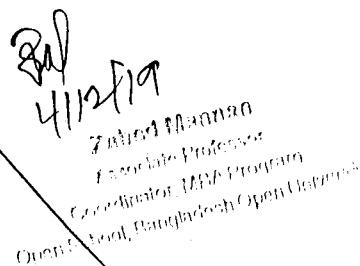 4/12/19
Zahed Mannan
Associate Professor
Coordinator, MBA Program
Open School, Bangladesh Open Universi